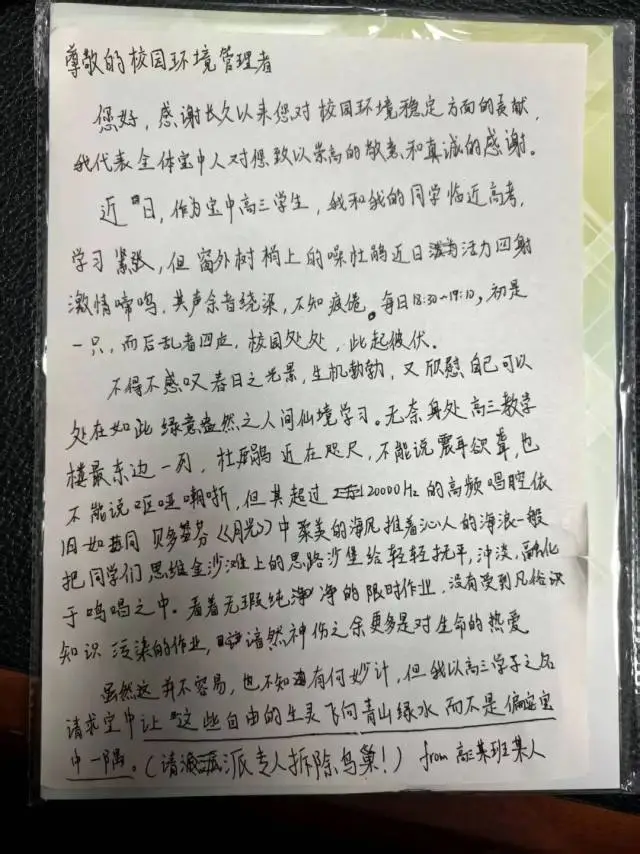 尊敬的校园环境管理者
您好，感谢长久以来您对校园环境稳定方面的贡献，
我代表全体宝中人对您致以崇高的敬意和真诚的感谢。
近日，作为宝中高三学生，我和我的同学临近高考，
学习紧张，但窗外树梢上的噪杜鹃近日活力四射
激情啼鸣，其声余音绕梁，不知疲倦。每日18:30~19:10，初是
一只，而后乱者四应，校园处处，此起彼伏。
不得不感叹春日之光景，生机勃勃，又欣慰自己可以
处在如此绿意盎然之人间仙境学习。无奈身处高三教学
楼最东边一列，杜鹃近在咫尺，不能说震耳欲聋，也
不能说呕哑嘲哳，但其超过20000Hz的高频唱腔依
旧如同贝多芬《月光》中聚美的海风推着沁人的海浪一般
把同学们思维金沙滩上的思路沙堡给轻轻抚平，冲淡，融化
于鸣唱之中。看着无瑕纯净的限时作业，没有受到凡俗识
知识污染的作业，黯然神伤之余更多是对生命的热爱
虽然这并不容易，也不知有何妙计，但我以高三学子之名
请求宝中让这些自由的生灵飞向青山绿水而不是偏安宝
中一隅。（请派专人拆除鸟巢！）from 高三某班某人